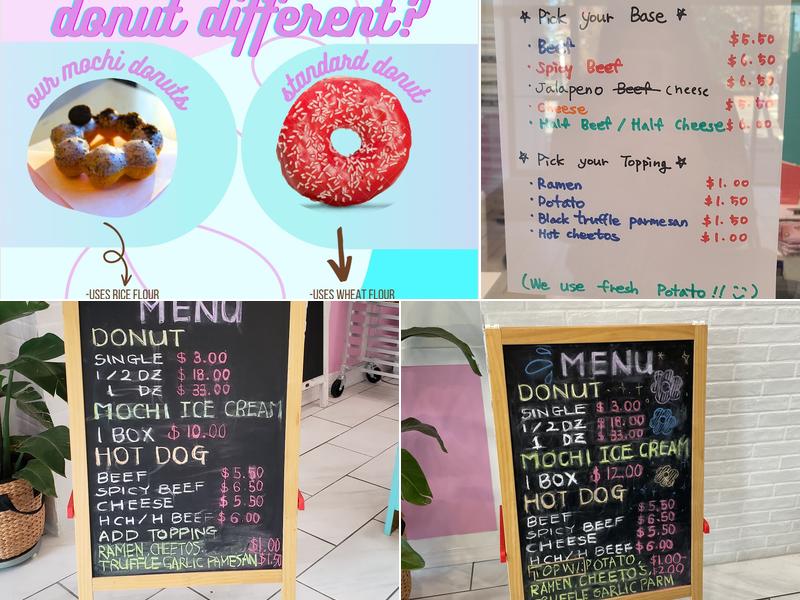 donut different?
our mochi donuts
standard donut
-USES RICE FLOUR
-USES WHEAT FLOUR
☆ Pick your Base ☆
• Beef $5.50
• Spicy Beef $6.50
• Jalapeno Beef cheese $6.50
• Cheese $5.50
• Half Beef / Half Cheese $6.00
☆ Pick your Topping ☆
• Ramen $1.00
• Potato $1.50
• Black truffle parmesan $1.50
• Hot cheetos $1.00
(We use fresh Potato!! :))
MENU
DONUT
SINGLE $3.00
1/2 DZ $18.00
1 DZ $33.00
MOCHI ICE CREAM
1 BOX $10.00
HOT DOG
BEEF $5.50
SPICY BEEF $6.50
CHEESE $5.50
HCH/H BEEF $6.00
ADD TOPPING
RAMEN, CHEETOS, $1.00
TRUFFLE GARLIC PARMESAN $1.50
MENU
DONUT
SINGLE $3.00
1/2 DZ $18.00
1 DZ $33.00
MOCHI ICE CREAM
1 BOX $12.00
HOT DOG
BEEF $5.50
SPICY BEEF $6.50
CHEESE $5.50
HCH/H BEEF $6.00
POTATO, $1.00-
RAMEN, CHEETO'S, $2.00
TRUFFLE GARLIC PARM